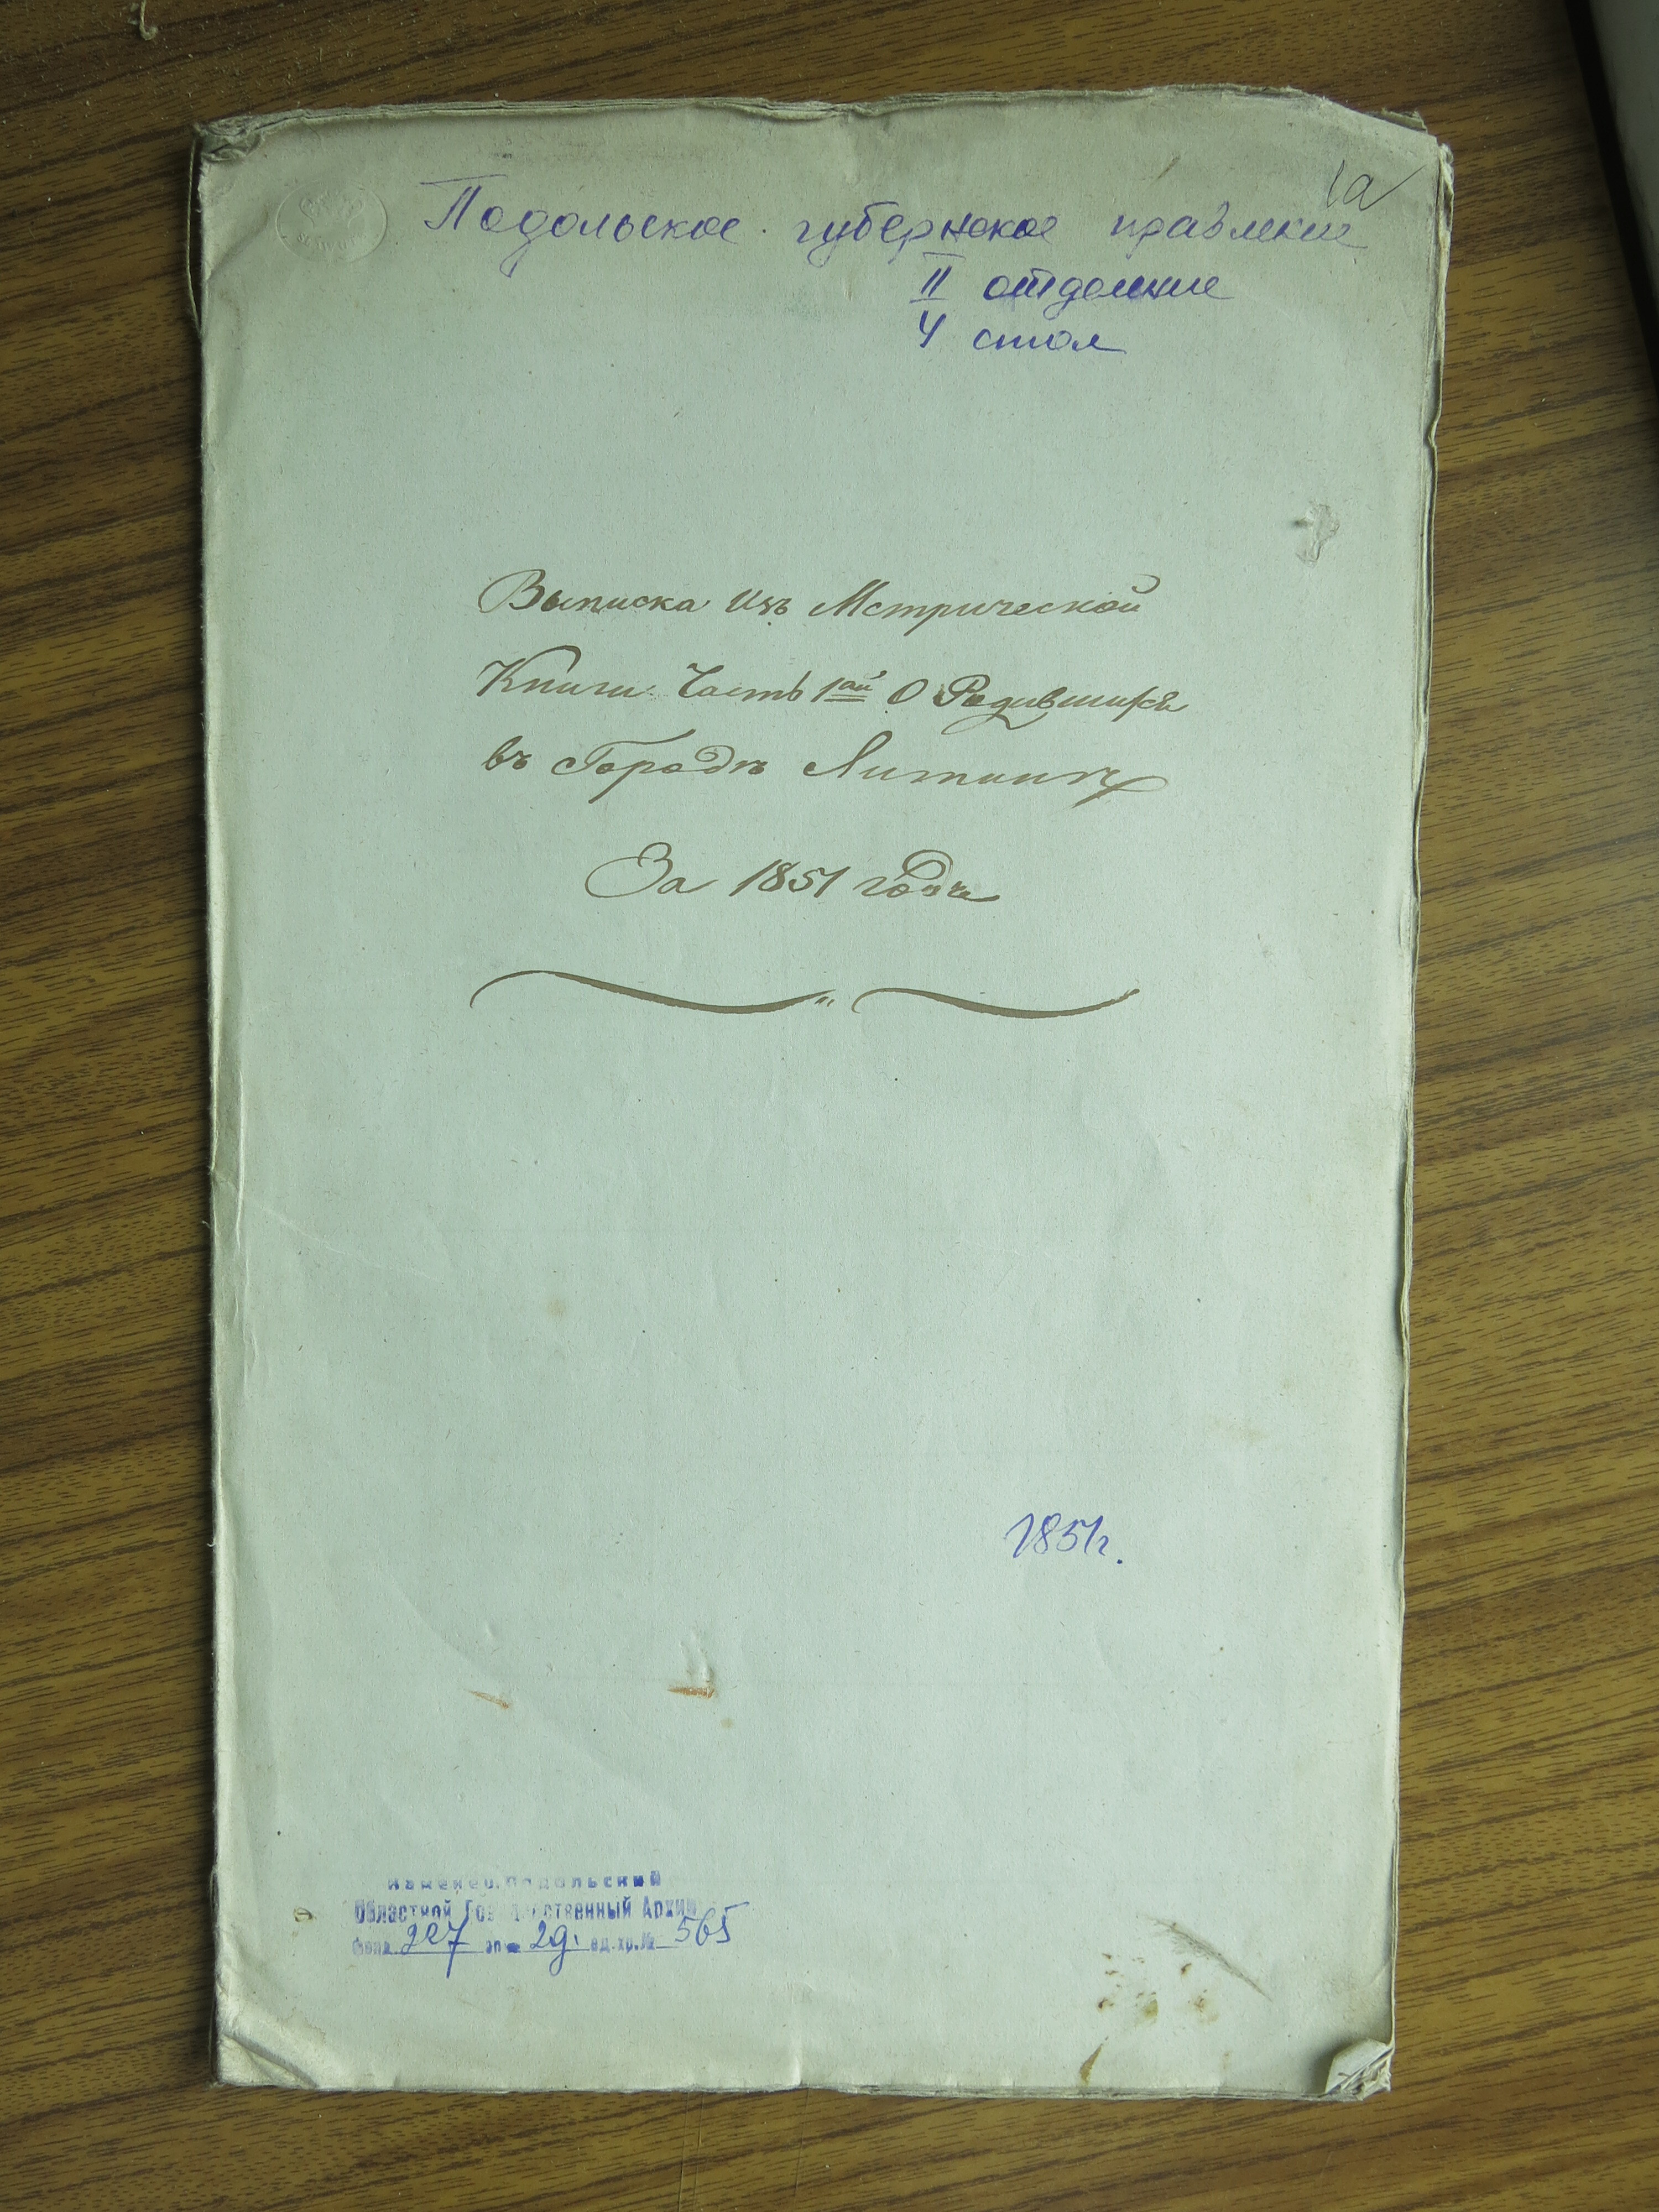 1а
Подольское губернское правление
II отделение
4 стол
Выписка изъ Метрической
Книги Часть 1ай О Родившихся
въ Городѣ Литинѣ
За 1851 годъ
1851г.
Каменец-Подольский
Областной Государственный Архив
Фонд 227 оп. 2д. ед.хр.№ 565